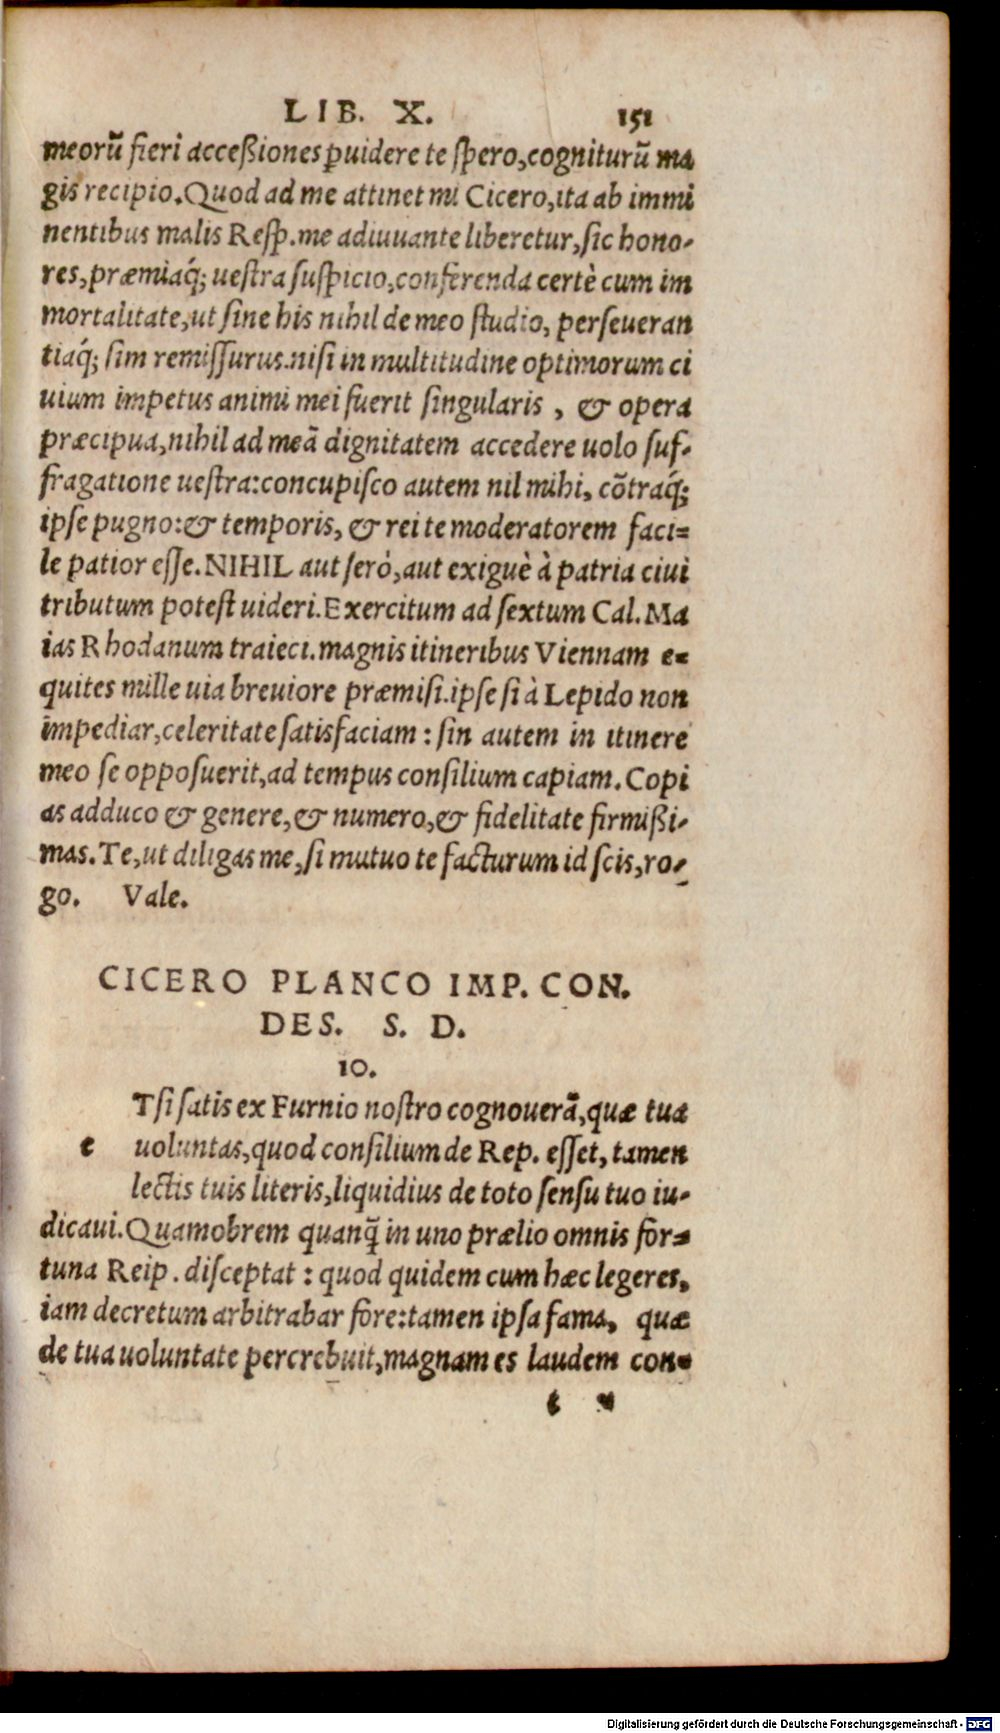 LIB. X. 151
meorũ fieri acceßiones ꝑuidere te spero,cogniturũ ma
gis recipio.Quod ad me attinet mi Cicero,ita ab immi
nentibus malis Resp.me adiuuante liberetur,sic hono-
res,præmiaq́; uestra suspicio,conferenda certè cum im
mortalitate,ut sine his nihil de meo studio, perseueran
tiaq́; sim remissurus.nisi in multitudine optimorum ci
uium impetus animi mei fuerit singularis , & opera
præcipua,nihil ad meã dignitatem accedere uolo suf-
fragatione uestra:concupisco autem nil mihi, cõtraq́;
ipse pugno:& temporis, & rei te moderatorem faci=
le patior esse.NIHIL aut serò,aut exiguè à patria ciui
tributum potest uideri.Exercitum ad sextum Cal.Ma
ias Rhodanum traieci.magnis itineribus Viennam e=
quites mille uia breuiore præmisi.ipse si à Lepido non
impediar,celeritate satisfaciam : sin autem in itinere
meo se opposuerit,ad tempus consilium capiam.Copi
as adduco & genere,& numero,& fidelitate firmißi-
mas.Te,ut diligas me,si mutuo te facturum id scis,ro-
go. Vale.
CICERO PLANCO IMP. CON.
DES. S. D.
10.
Tsi satis ex Furnio nostro cognouerã,quæ tua
e uoluntas,quod consilium de Rep. esset, tamen
lectis tuis literis,liquidius de toto sensu tuo iu-
dicaui.Quamobrem quanq̃ in uno prælio omnis for=
tuna Reip. disceptat : quod quidem cum hæc legeres,
iam decretum arbitrabar fore:tamen ipsa fama, quæ
de tua uoluntate percrebuit,magnam es laudem con-
t
Digitalisierung gefördert durch die Deutsche Forschungsgemeinschaft - DFG